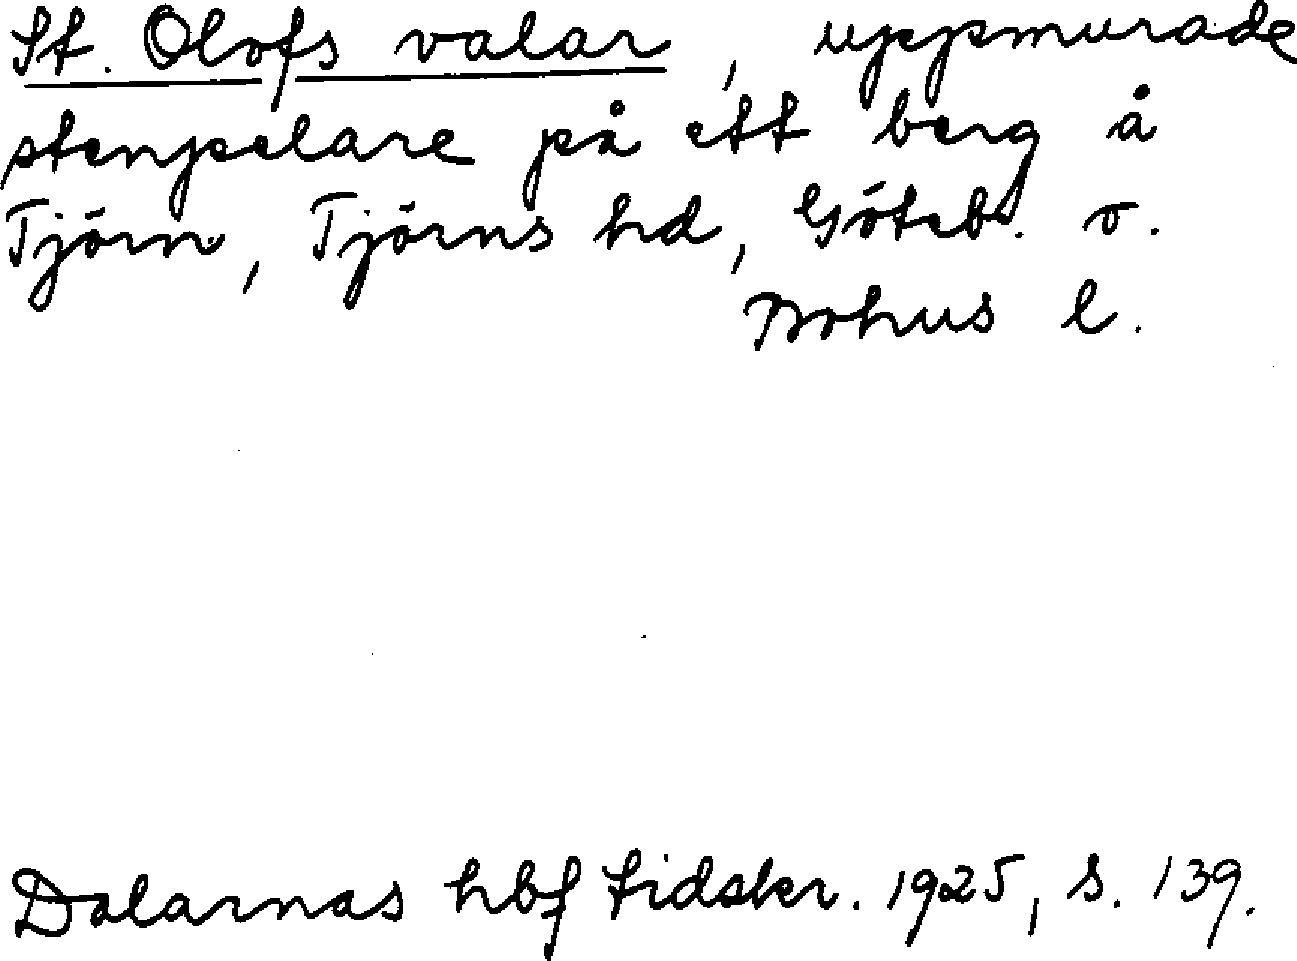 St. Olofs valar, uppmurade
stenpelare på ett berg å
Tjörn, Tjörns hd, Göteb. o.
Bohus l.
Dalarnas hbf tidskr. 1925, s. 139.